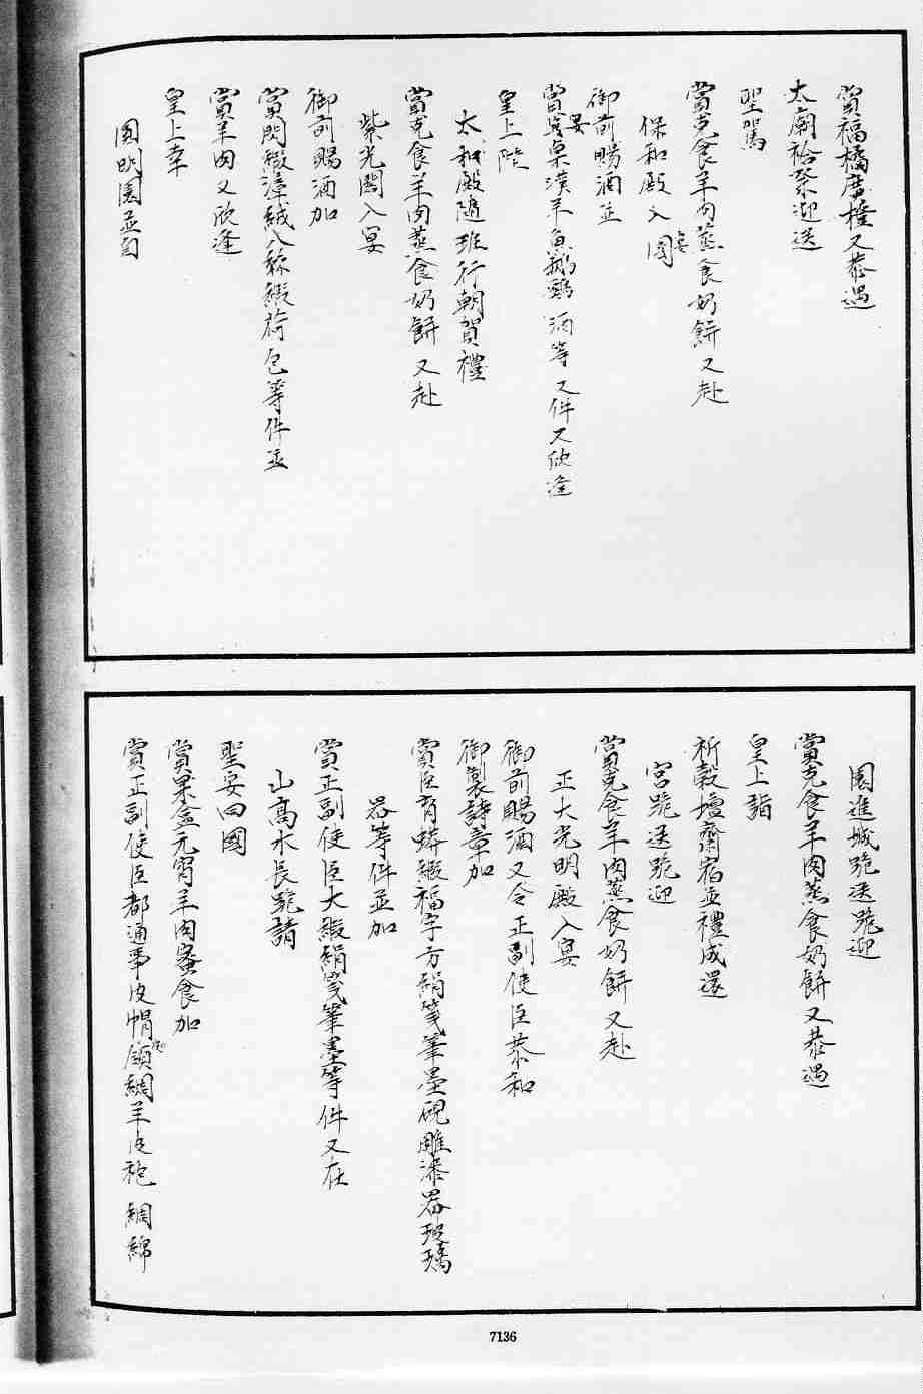 賞福橘廣橙又恭遇
太廟祫祭迎送
聖駕
賞克食羊肉蒸食奶餅又赴
保和殿入宴園
御前賜酒並
賞宴桌漢羊魚鵝鷄酒等又件又欣逢
皇上陞
太和殿隨班行朝賀禮
賞克食羊肉蒸食奶餅又赴
紫光閣入宴
御前賜酒加
賞閃緞漳絨八絲緞荷包等件並
賞羊肉又欣逢
皇上幸
圓明園並自
園進城跪送跪迎
賞克食羊肉蒸食奶餅又恭遇
皇上詣
祈穀壇齋宿並禮成還
宮跪送跪迎
賞克食羊肉蒸食奶餅又赴
正大光明殿入宴
御前賜酒又令正副使臣恭和
御製詩章加
賞臣育蟒緞福字方絹箋筆墨硯雕漆器玻璃
器等件並加
賞正副使臣大緞絹箋筆墨等件又在
山高水長跪請
聖安回國
賞菓盒元宵羊肉蜜食加
賞正副使臣都通事皮帽領綢羊皮袍綢綿
7136